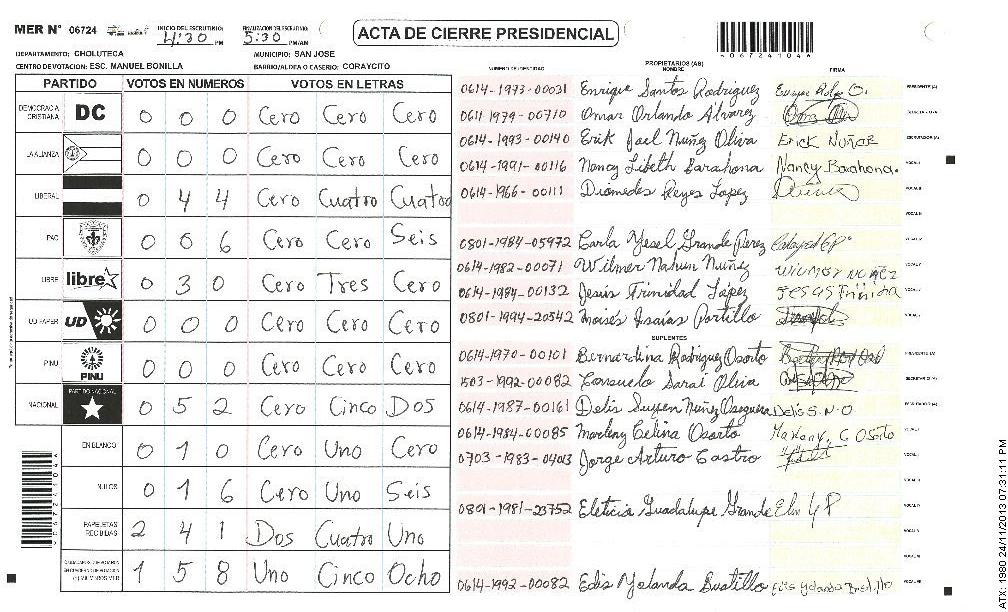 MER Nº 06724 INICIO DEL ESCRUTINIO: 4:30 PM FINALIZACION DEL ESCRUTINIO: 5:30 PM/AM ACTA DE CIERRE PRESIDENCIAL *06724104*
DEPARTAMENTO: CHOLUTECA MUNICIPIO: SAN JOSE
CENTRO DE VOTACION: ESC. MANUEL BONILLA BARRIO/ALDEA O CASERIO: CORAYCITO
PARTIDO VOTOS EN NUMEROS VOTOS EN LETRAS
DEMOCRACIA CRISTIANA DC 0 0 0 Cero Cero Cero
LA ALIANZA 0 0 0 Cero Cero Cero
LIBERAL 0 4 4 Cero Cuatro Cuatro
PAC 0 0 6 Cero Cero Seis
LIBRE libre 0 3 0 Cero Tres Cero
UD FAPER UD 0 0 0 Cero Cero Cero
PINU PINU 0 0 0 Cero Cero Cero
NACIONAL PARTIDO NACIONAL 0 5 2 Cero Cinco Dos
EN BLANCO 0 1 0 Cero Uno Cero
NULOS 0 1 6 Cero Uno Seis
PAPELETAS RECIBIDAS 2 4 1 Dos Cuatro Uno
1 5 8 Uno Cinco Ocho
NUMERO DE IDENTIDAD PROPIETARIOS (AS) NOMBRE FIRMA
0614-1973-00031 Enrique Santos Rodriguez PRESIDENTE (A)
0611-1979-00710 Omar Orlando Alvarez
0614-1993-00140 Erik Joel Nuñez Oliva ERICK NUÑEZ ESCRUTADOR (A)
0614-1991-00116 Nancy Lizeth Barahona Nancy Barahona. VOCAL I
0614-1966-00111 Diomedes Reyes Lopez VOCAL II
VOCAL III
0801-1984-05972 Carla Yesel Grande Perez VOCAL IV
0614-1982-00071 Wilmer Nahun Nuñez WILMER NUÑEZ VOCAL V
0614-1984-00132 Jesús Trinidad López JESUS Trinida
0801-1994-20542 Moisés Isaías Portillo
SUPLENTES
0614-1970-00101 Bernardina Rodriguez Osorto PRESIDENTE (A)
1503-1992-00082 Consuelo Sarai Oliva SECRETARIO (A)
0614-1987-00161 Delis Suyen Nuñez Oseguera Delis S.N.O ESCRUTADOR (A)
0614-1984-00085 Marleny Celina Osorto Marleny, C Osorto VOCAL I
0703-1983-04013 Jorge Arturo Castro
0801-1981-23752 Eleticia Guadalupe Grande
0614-1992-00082 Edis Yolanda Bustillo Edis Yolanda Bustillo
ATX: 1980 24/11/2013 07:31:11 PM